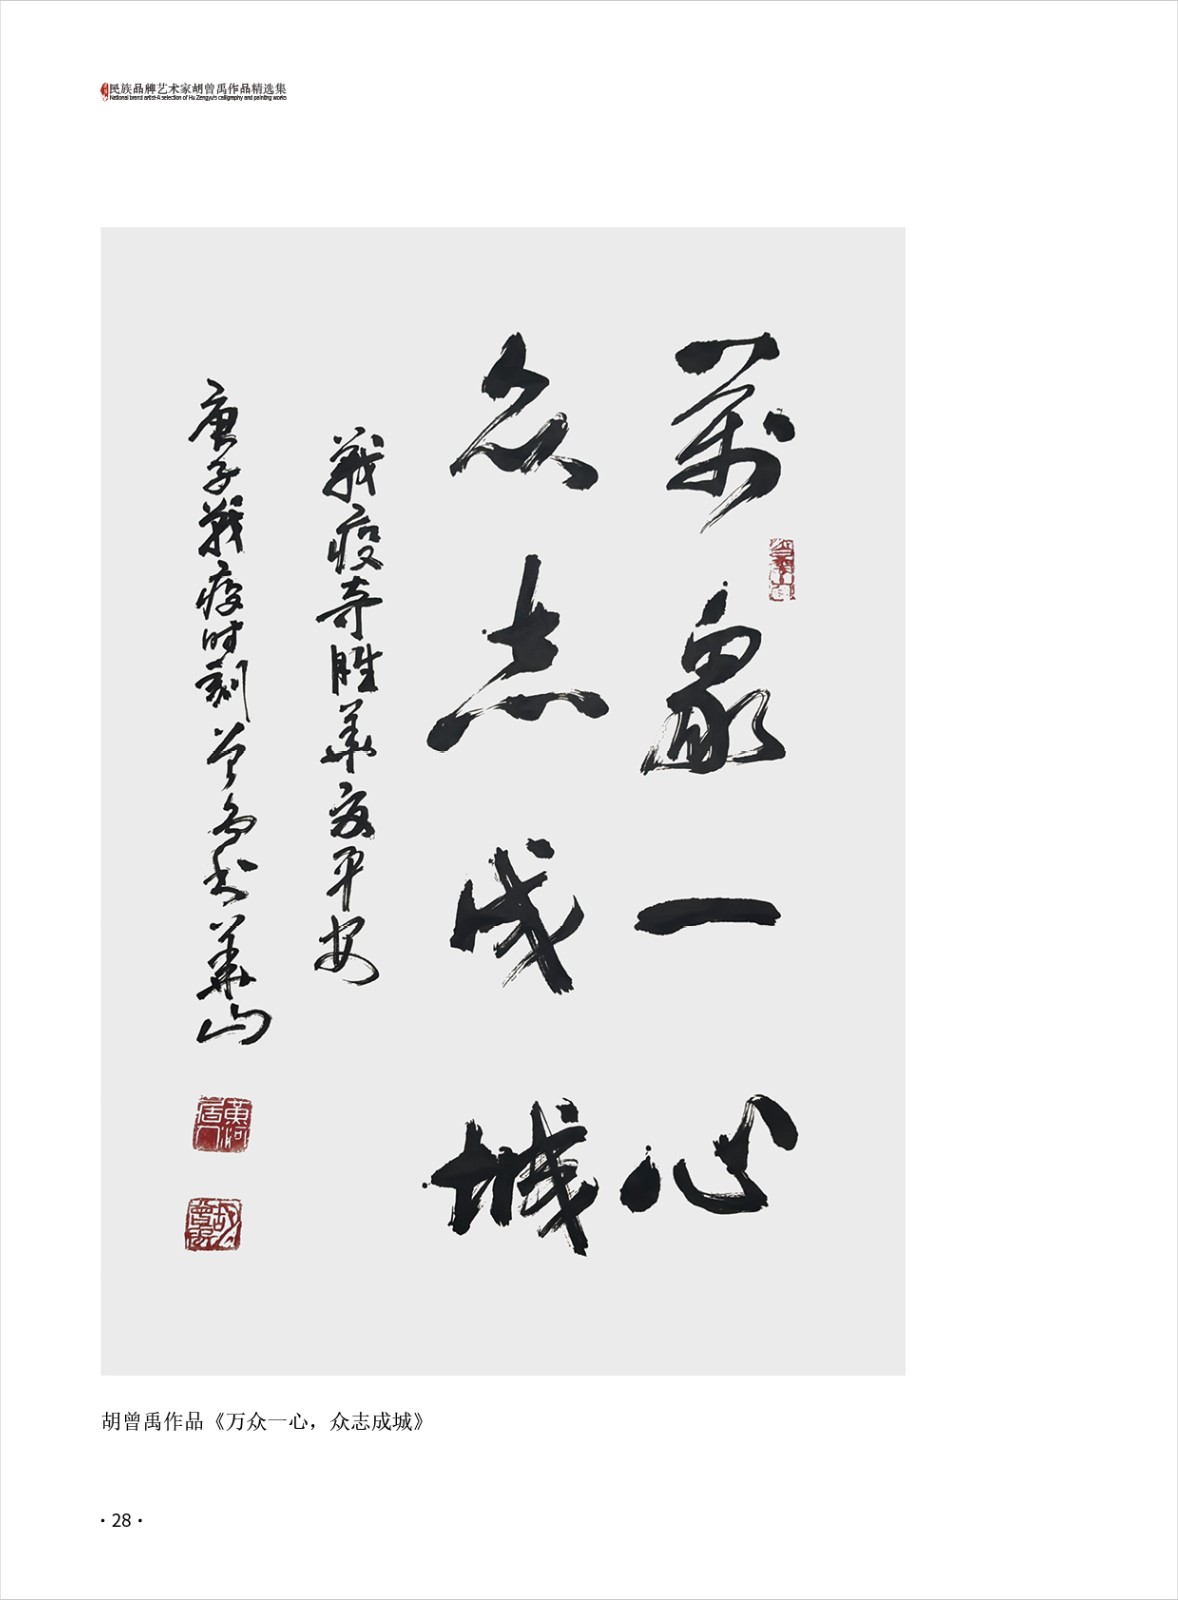 民族品牌艺术家胡曾禹作品精选集
National brand artist-A selection of Hu Zengyu's calligraphy and painting works
萬眾一心
众志成城
戰疫奇胜華夏平安
庚子戰疫时刻曾禹于華山
黄河居人
胡作品《万众一心，众志成城》
· 28 ·